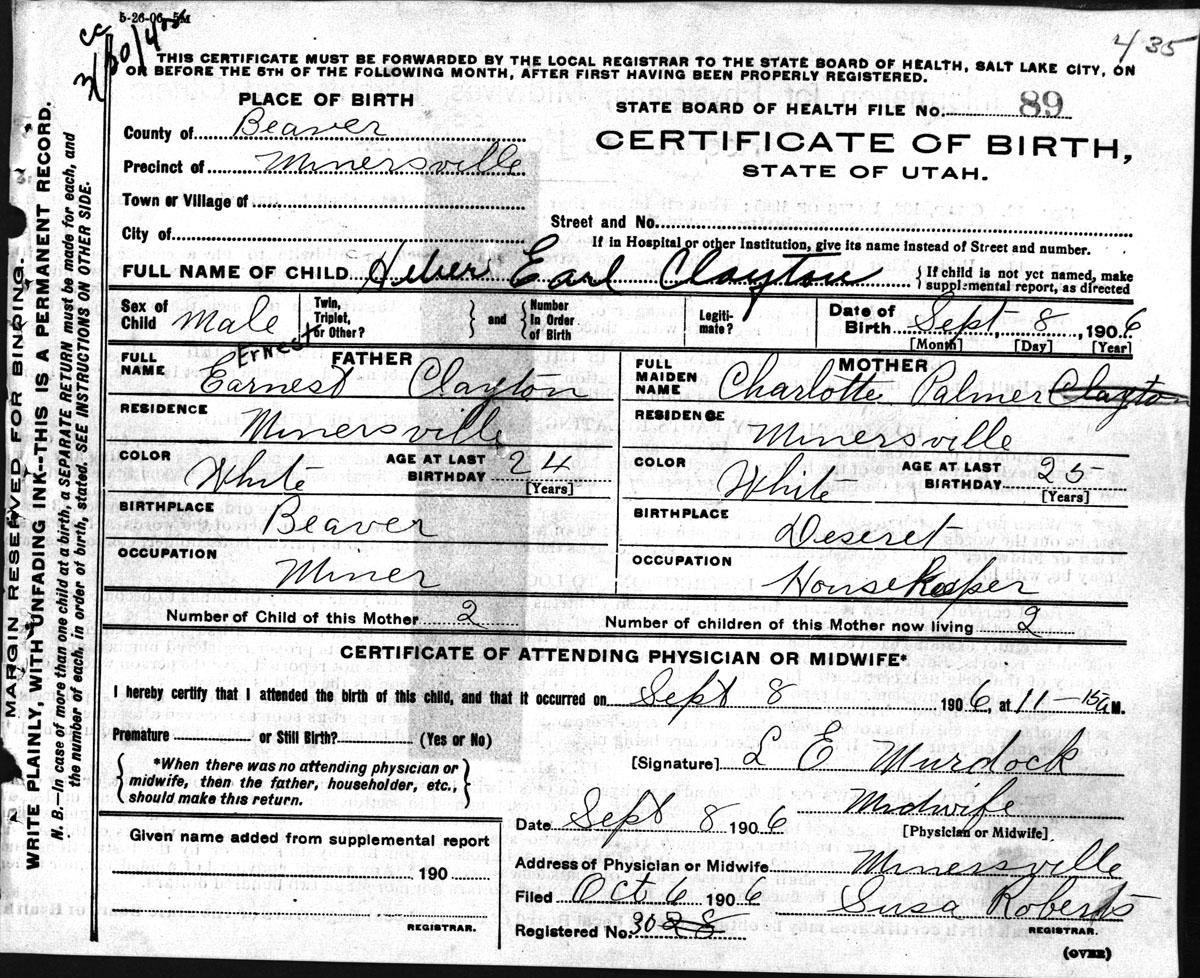 5-26-06-5M
435
THIS CERTIFICATE MUST BE FORWARDED BY THE LOCAL REGISTRAR TO THE STATE BOARD OF HEALTH, SALT LAKE CITY, ON
OR BEFORE THE 5TH OF THE FOLLOWING MONTH, AFTER FIRST HAVING BEEN PROPERLY REGISTERED.
MARGIN RESERVED FOR BINDING.
WRITE PLAINLY, WITH UNFADING INK--THIS IS A PERMANENT RECORD.
N. B.--In case of more than one child at a birth, a SEPARATE RETURN must be made for each, and
the number of each, in order of birth, stated. SEE INSTRUCTIONS ON OTHER SIDE.
PLACE OF BIRTH
County of Beaver
Precinct of Minersville
Town or Village of
City of
STATE BOARD OF HEALTH FILE No. 89
CERTIFICATE OF BIRTH,
STATE OF UTAH.
Street and No.
If in Hospital or other Institution, give its name instead of Street and number.
FULL NAME OF CHILD Heber Earl Clayton { If child is not yet named, make
supplemental report, as directed
Sex of Child Male
Twin, Triplet, or Other? } and { Number In Order of Birth
Legiti- mate?
Date of Birth Sept 8, 1906
[Month] [Day] [Year]
FATHER
Ernest
FULL NAME Earnest Clayton
RESIDENCE
Minersville
COLOR White AGE AT LAST BIRTHDAY 24
[Years]
BIRTHPLACE
Beaver
OCCUPATION
Miner
MOTHER
FULL MAIDEN NAME Charlotte Palmer Clayton
RESIDENCE
Minersville
COLOR White AGE AT LAST BIRTHDAY 25
[Years]
BIRTHPLACE
Deseret
OCCUPATION
Housekeeper
Number of Child of this Mother 2 Number of children of this Mother now living 2
CERTIFICATE OF ATTENDING PHYSICIAN OR MIDWIFE*
I hereby certify that I attended the birth of this child, and that it occurred on Sept 8 1906, at 11-15 a M.
Premature or Still Birth? (Yes or No)
{ *When there was no attending physician or
midwife, then the father, householder, etc.,
should make this return. }
[Signature] L E Murdock
Date Sept 8 1906 Midwife
[Physician or Midwife]
Address of Physician or Midwife Minersville
Filed Oct 6 1906 Susa Roberts
Registered No. 30 28 REGISTRAR.
(OVER)
Given name added from supplemental report
190
REGISTRAR.